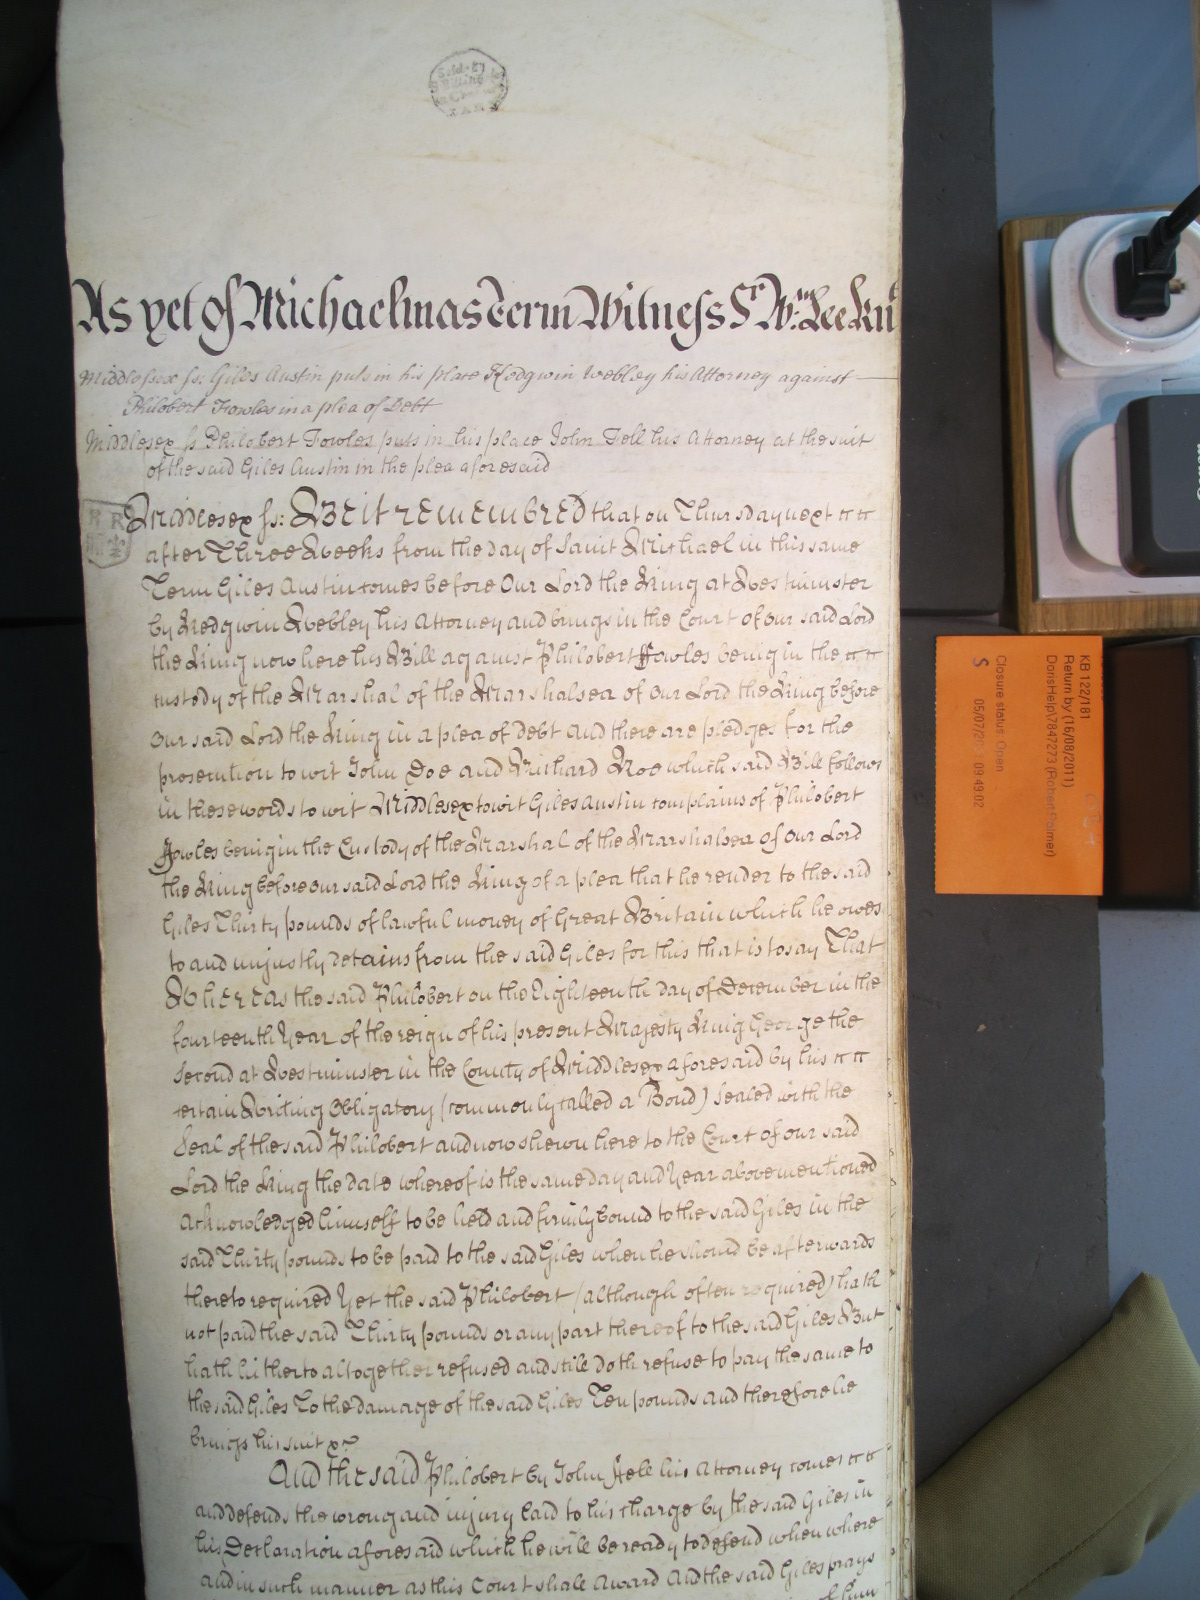 As yet of Michaelmas Term Witness Sr. Wm. Lee Knt
Middlesex ss: Giles Austin puts in his place Hedgwin Webley his Attorney against
Philobert Fowles in a plea of Debt
Middlesex ss Philobert Fowles puts in his place John Fell his Attorney at the suit
of the said Giles Austin in the plea aforesaid
Middlesex ss: Be it remembred that on Thursday next
after Three Weeks from the day of Saint Michael in this same
Term Giles Austin comes before Our Lord the King at Westminster
by Hedgwin Webley his Attorney and brings in the Court of our said Lord
the King now here his Bill against Philobert Fowles being in the
custody of the Marshal of the Marshalsea of our Lord the King before
Our said Lord the King in a plea of debt And there are pledges for the
prosecution to wit John Doe and Richard Roe which said Bill follows
in these words to wit Middlesex to wit Giles Austin complains of Philobert
Fowles being in the Custody of the Marshal of the Marshalsea of Our Lord
the King before our said Lord the King of a plea that he render to the said
Giles Thirty pounds of lawful money of Great Britain which he owes
to and unjustly detains from the said Giles for this that is to say That
Whereas the said Philobert on the Eighteenth day of December in the
fourteenth Year of the reign of his present Majesty King George the
Second at Westminster in the County of Middlesex aforesaid by his
certain Writing Obligatory (commonly called a Bond) Sealed with the
Seal of the said Philobert and now shewn here to the Court of our said
Lord the King the date whereof is the same day and Year abovementioned
Acknowledged himself to be held and firmly bound to the said Giles in the
said Thirty pounds to be paid to the said Giles when he should be afterwards
thereto required Yet the said Philobert (although often required) hath
not paid the said Thirty pounds or any part thereof to the said Giles But
hath hitherto altogether refused and still doth refuse to pay the same to
the said Giles To the damage of the said Giles Ten pounds and therefore he
brings his suit &c
And the said Philobert by John Fell his Attorney comes
and defends the wrong and injury laid to his charge by the said Giles in
his Declaration aforesaid which he will be ready to defend when where
and in such manner as this Court shall Award And the said Giles prays
of him
KB 122/181
Return by (16/08/2011)
DorisHelp\7847273 (Robert Palmer)
Closure status: Open
S
09:49:02